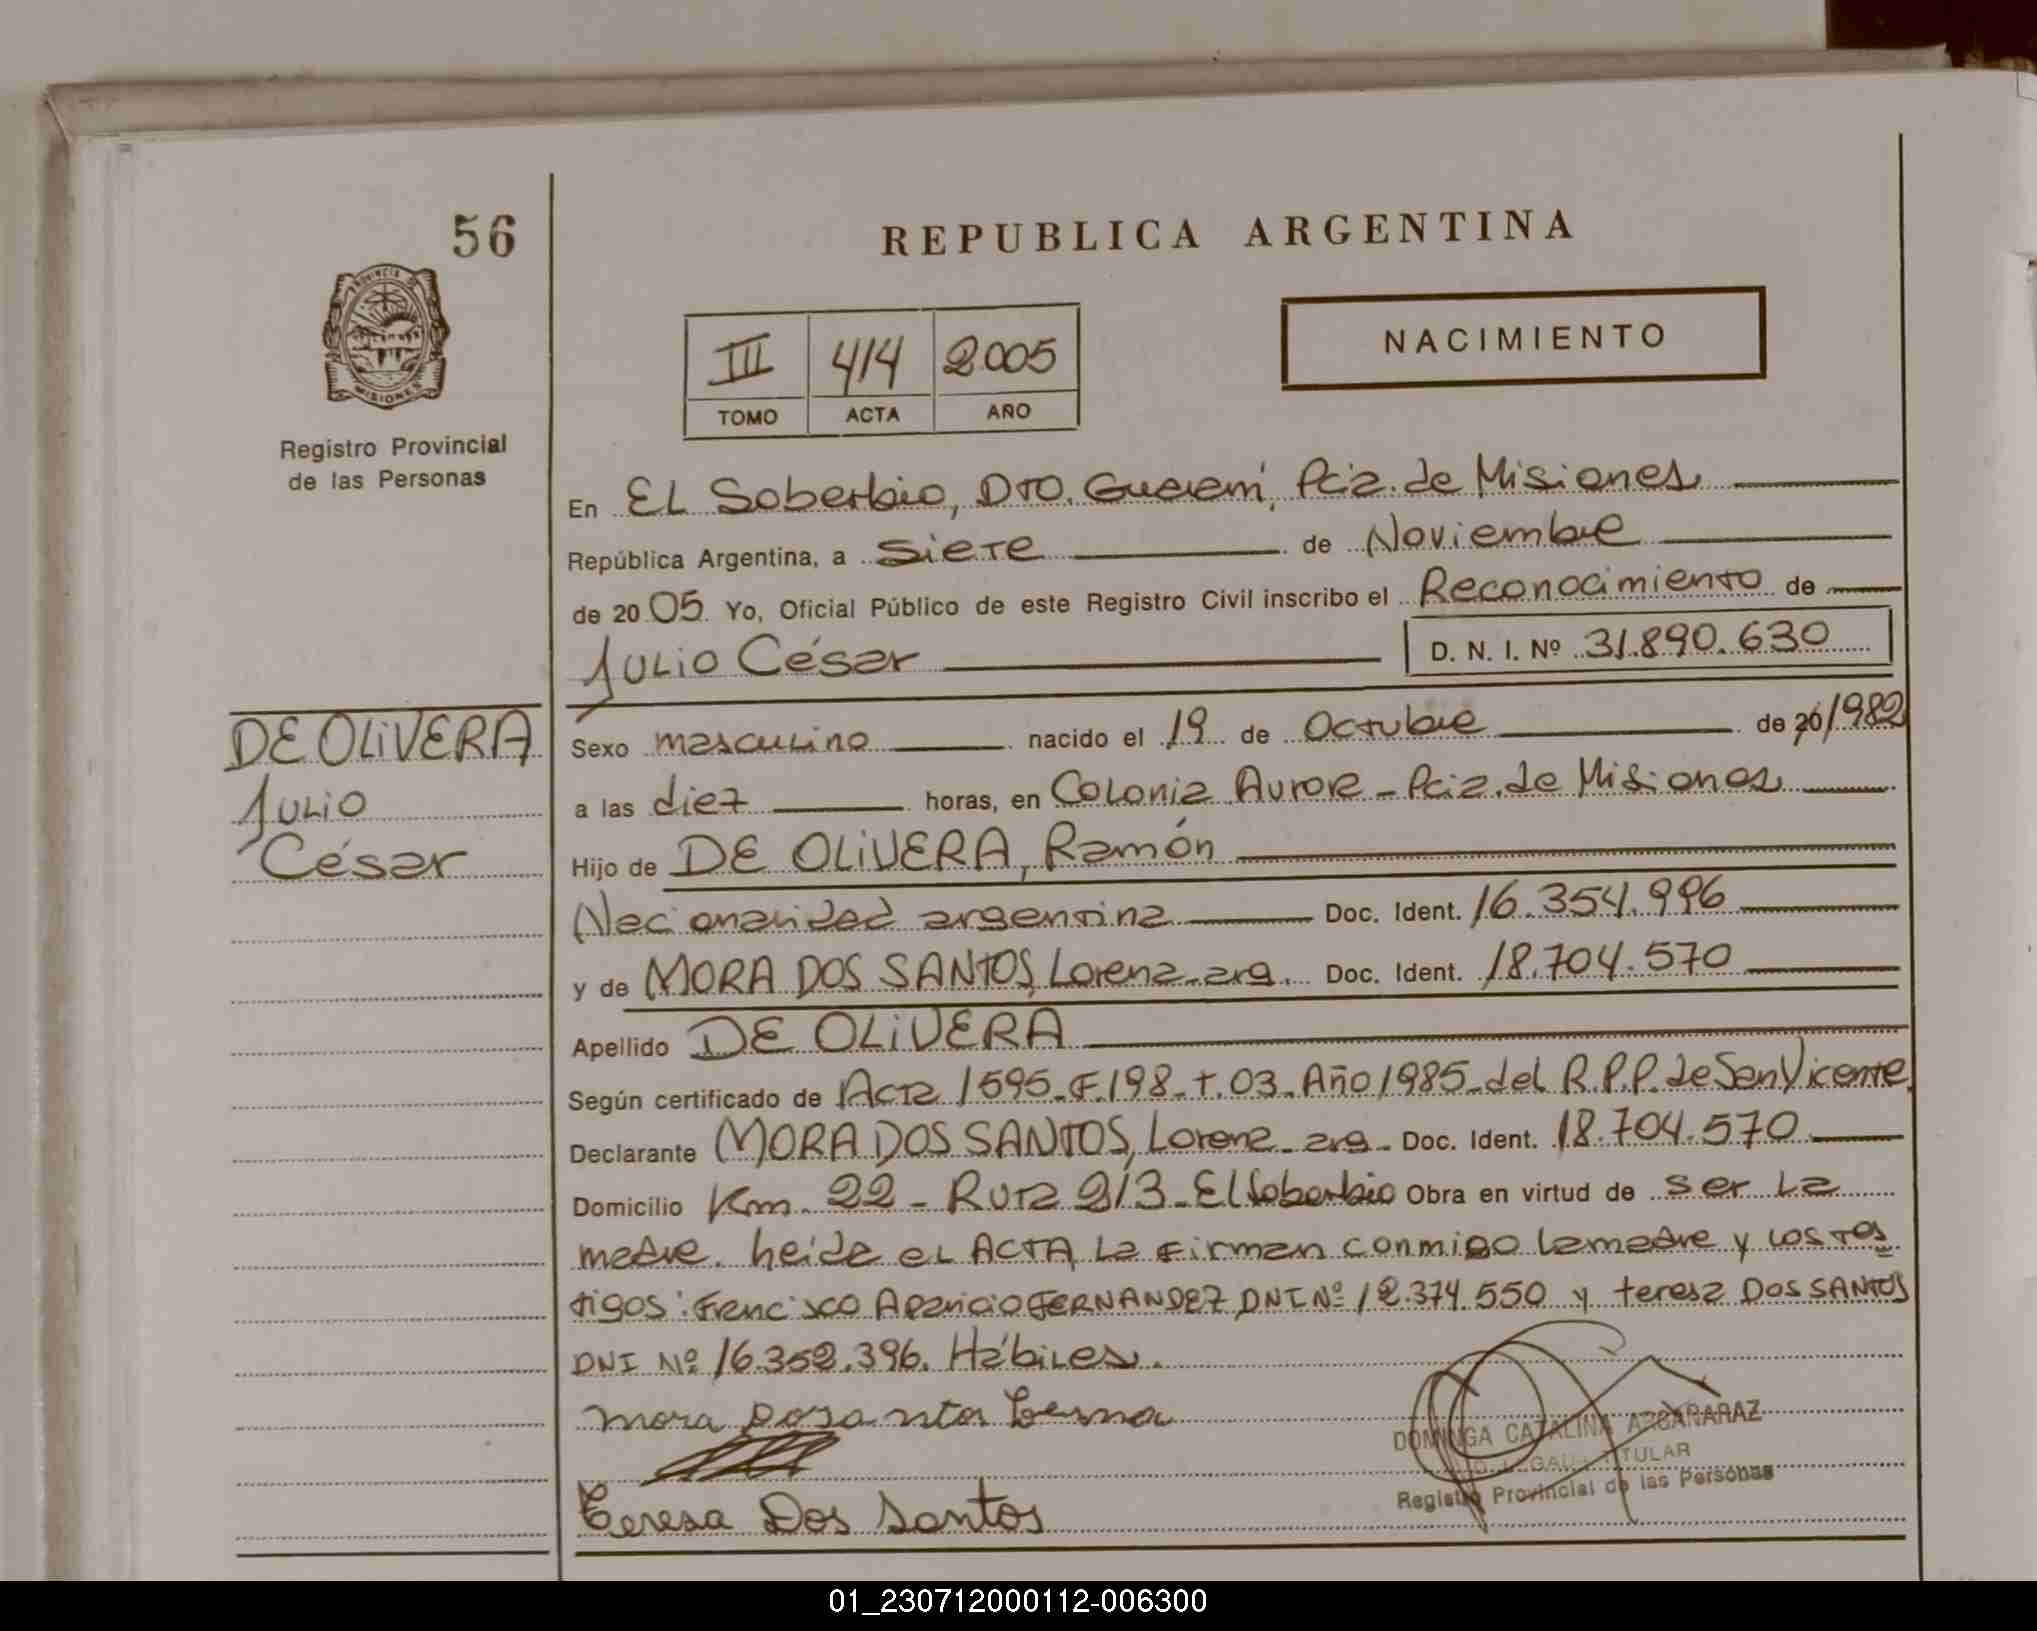 56
REPUBLICA ARGENTINA
PROVINCIA DE
MISIONES
Registro Provincial
de las Personas
III 414 2.005
TOMO ACTA AÑO
NACIMIENTO
En EL Soberbio, Dto. Guaraní, Pcia. de Misiones
República Argentina, a siete de Noviembre
de 20 05 Yo, Oficial Público de este Registro Civil inscribo el Reconocimiento de
Julio César D. N. I. Nº 31.890.630
DE OLIVERA
Julio
César
Sexo masculino nacido el 19 de Octubre de 20/1982
a las diez horas, en Colonia Aurora - Pcia. de Misiones
Hijo de DE OLIVERA, Ramón
Nacionalidad argentina Doc. Ident. 16.354.996
y de MORA DOS SANTOS, Lorena - arg. Doc. Ident. 18.704.570
Apellido DE OLIVERA
Según certificado de Acta 1595 - F. 198 - T. 03 - Año 1985 - del R.P.P. de San Vicente.
Declarante MORA DOS SANTOS, Lorena - arg - Doc. Ident. 18.704.570
Domicilio Km. 22 - Ruta 213 - El Soberbio Obra en virtud de ser la
madre. heida el ACTA, la firman conmigo la madre y los tes
tigos: Francisco Aparicio FERNANDEZ, DNI Nº 12.374.550 y teresa DOS SANTOS
DNI Nº 16.352.396. Hábiles.
mora
Teresa Dos Santos
DOMINGA CATALINA ARGAÑARAZ
TITULAR
Registro Provincial de las Personas
01_230712000112-006300